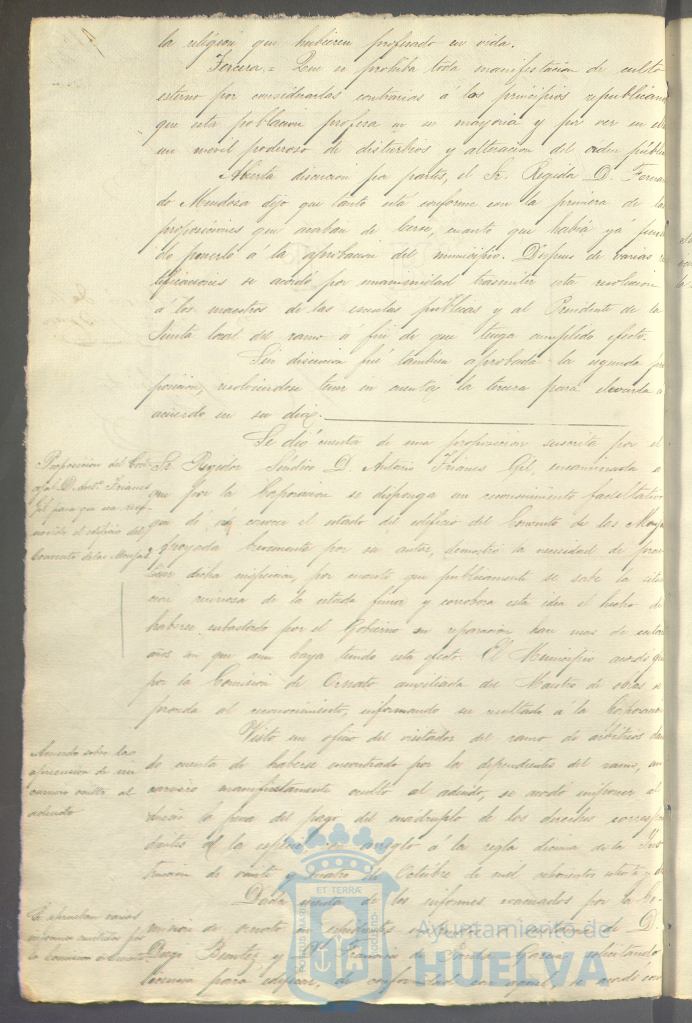 la religion que hubiesen profesado en vida.
Tercera.= Que se prohiba toda manifestacion de culto
esterno por considerarlas contrarias á los principios republicano
que esta poblacion profesa en su mayoria y por ver en el
un movil poderoso de disturbios y alteracion del orden públic
Abierta discusion por partes, el Sr. Regidor D. Fernan
do Mendoza dijo que tanto está conforme con la primera de las
proposiciones que acaban de leerse, cuanto que habia yá
do ponerlo á la aprobacion del municipio. Despues de varias
tificaciones se acordó por unanimidad trasmitir esta resolucion
á los maestros de las escuelas públicas y al Presidente de la
Junta local del ramo á fin de que tenga cumplido efecto.
Sin discusion fué tambien aprobada la segunda pro
posicion, resolviendose tener en cuenta la tercera para elevarla á
acuerdo en su dia.
Proposicion del
D. Antº. Frianes
Gil para que sea
el edificio del
Convento de las Monjas
Se dió cuenta de una proposicion suscrita por el
Sr. Regidor Síndico D. Antonio Frianes Gil, encaminada á
que por la Corporacion se disponga un reconocimiento facultativo
que dé á conocer el estado del edificio del Convento de las Monja
Apoyada brevemente por su autor, demostró la necesidad de prac
ticar dicha inspeccion, por cuanto que publicamente se sabe la situa
cion ruinosa de la citada finca y corrobora esta idea el hecho de
haberse subastado por el Gobierno su reparacion hace mas de
años sin que aun haya tenido esta efecto. El Municipio acordó que
por la Comision de Ornato auxiliada del Maestro de obras se
proceda al reconocimiento, informando su resultado á la Corporacion
Acuerdo sobre la
aprension de un
carnero oculto al
adeudo
Visto un oficio del visitador del ramo de árbitrios dan
do cuenta de haberse encontrado por los dependientes del ramo, un
carnero manifiestamente oculto al adeudo, se acordó imponer al
dueño la pena del pago del cuadruplo de los derechos correspon
dientes á la especie con arreglo á la regla decima de la Ins
truccion de veinte y cuatro de Octubre de mil ochocientos
Se aprueban varios
informes emitidos por
la Comision de Ornato
Dada cuenta de los informes evacuados por la Co-
mision de ornato en espedientes D.
Diego Benitez y Dª Francisca de Garcia, solicitando
licencia para edificar, de conformidad con aquel, se acordó
ET TERRÆ
PORTUS MARIS
CUSTODIA
Ayuntamiento de
HUELVA